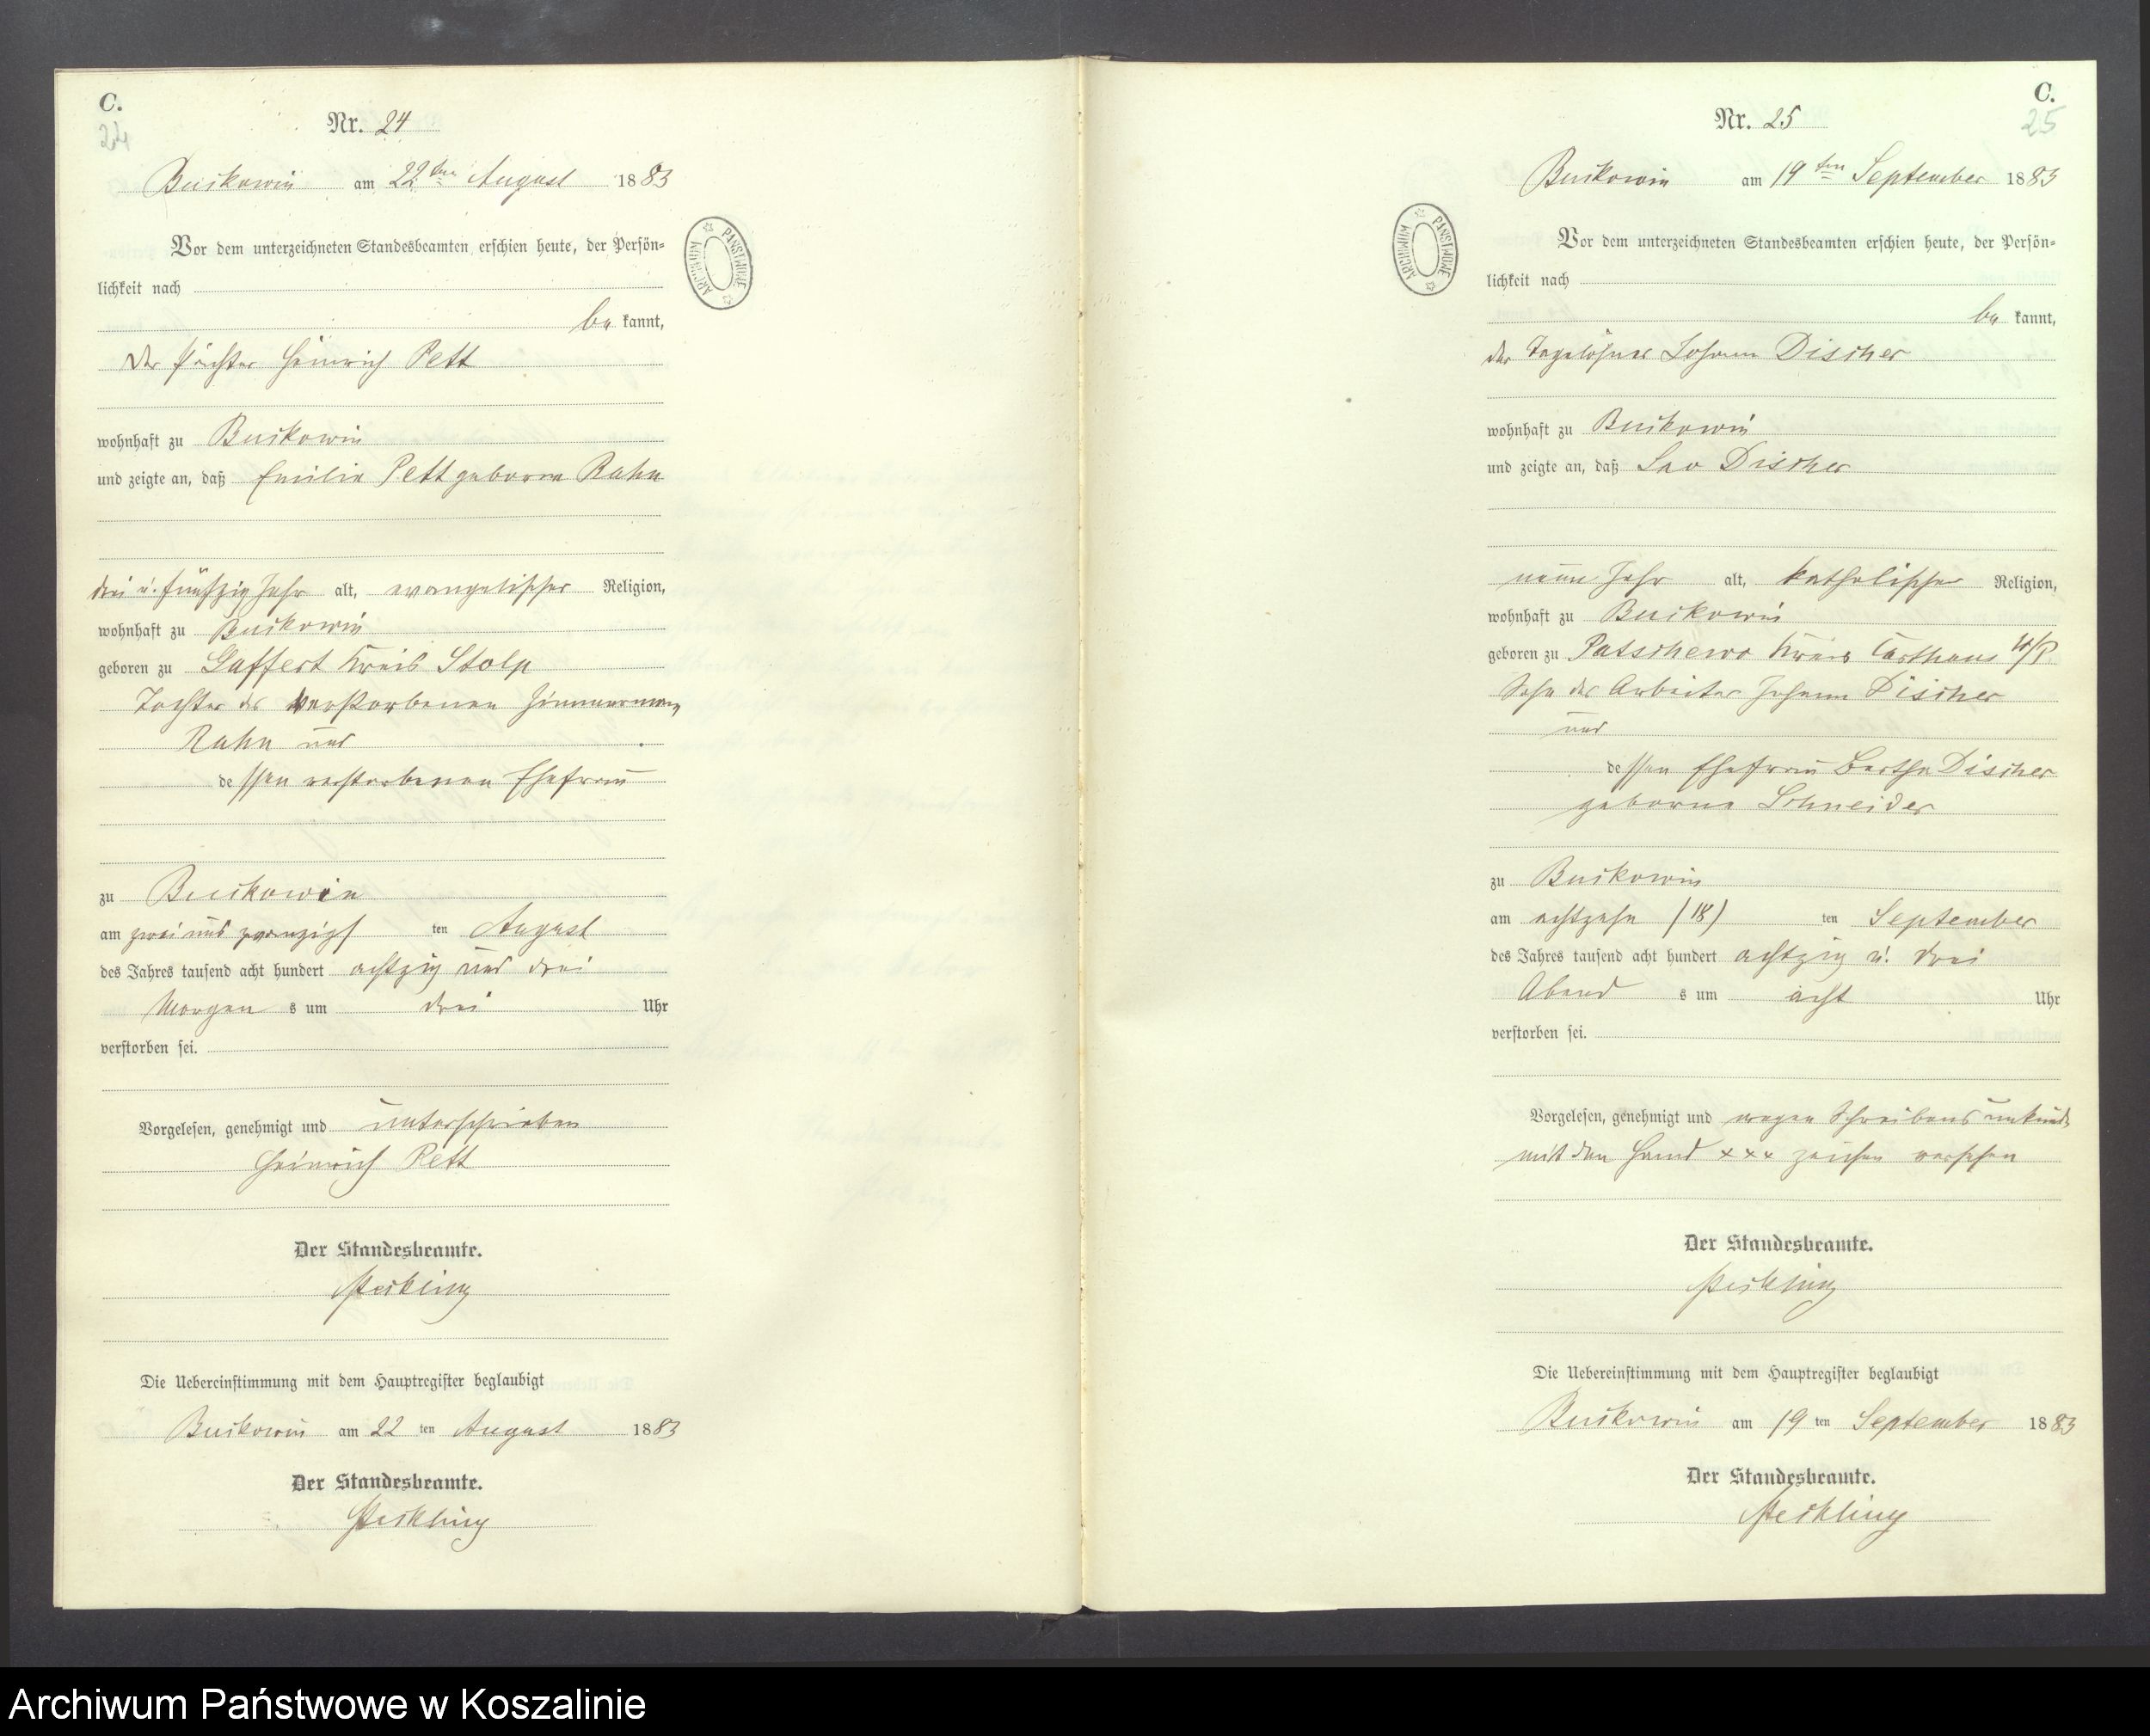 C.
24
Nr. 24
Buckowin am 22ten August 1883
Vor dem unterzeichneten Standesbeamten erschien heute, der Persön-
lichkeit nach
be kannt,
der Pächter Heinrich Pett
wohnhaft zu Buckowin
und zeigte an, daß Emilie Pett geborne Rahn
drei u. fünfzig Jahr alt, evangelischer Religion,
wohnhaft zu Buckowin
geboren zu Gaffert Kreis Stolp
Tochter des verstorbenen Zimmermann
Rahn und
dessen verstorbenen Ehefrau
zu Buckowin
am zwei und zwanzigs ten August
des Jahres tausend acht hundert achtzig und drei
Morgen s um drei Uhr
verstorben sei.
Vorgelesen, genehmigt und unterschrieben
Heinrich Pett
Der Standesbeamte.
Die Uebereinstimmung mit dem Hauptregister beglaubigt
Buckowin am 22 ten August 1883
Der Standesbeamte.
ARCHIWUM PAŃSTWOWE
C.
25
Nr. 25
Buckowin am 19ten September 1883
Vor dem unterzeichneten Standesbeamten erschien heute, der Persön-
lichkeit nach
be kannt,
der Tagelöhner Johann Discher
wohnhaft zu Buckowin
und zeigte an, daß Leo Discher
neun Jahr alt, katholischer Religion,
wohnhaft zu Buckowin
geboren zu Patschewo Kreis Carthaus W/P.
Sohn des Arbeiter Johann Discher
und
dessen Ehefrau Bertha Discher
geborne Schneider
zu Buckowin
am achtzehn (18) ten September
des Jahres tausend acht hundert achtzig u. drei
Abend s um acht Uhr
verstorben sei.
Vorgelesen, genehmigt und wegen Schreibens unkunde
mit den Hand xxx zeichen versehen
Der Standesbeamte.
Die Uebereinstimmung mit dem Hauptregister beglaubigt
Buckowin am 19 ten September 1883
Der Standesbeamte.
ARCHIWUM PAŃSTWOWE
Archiwum Państwowe w Koszalinie